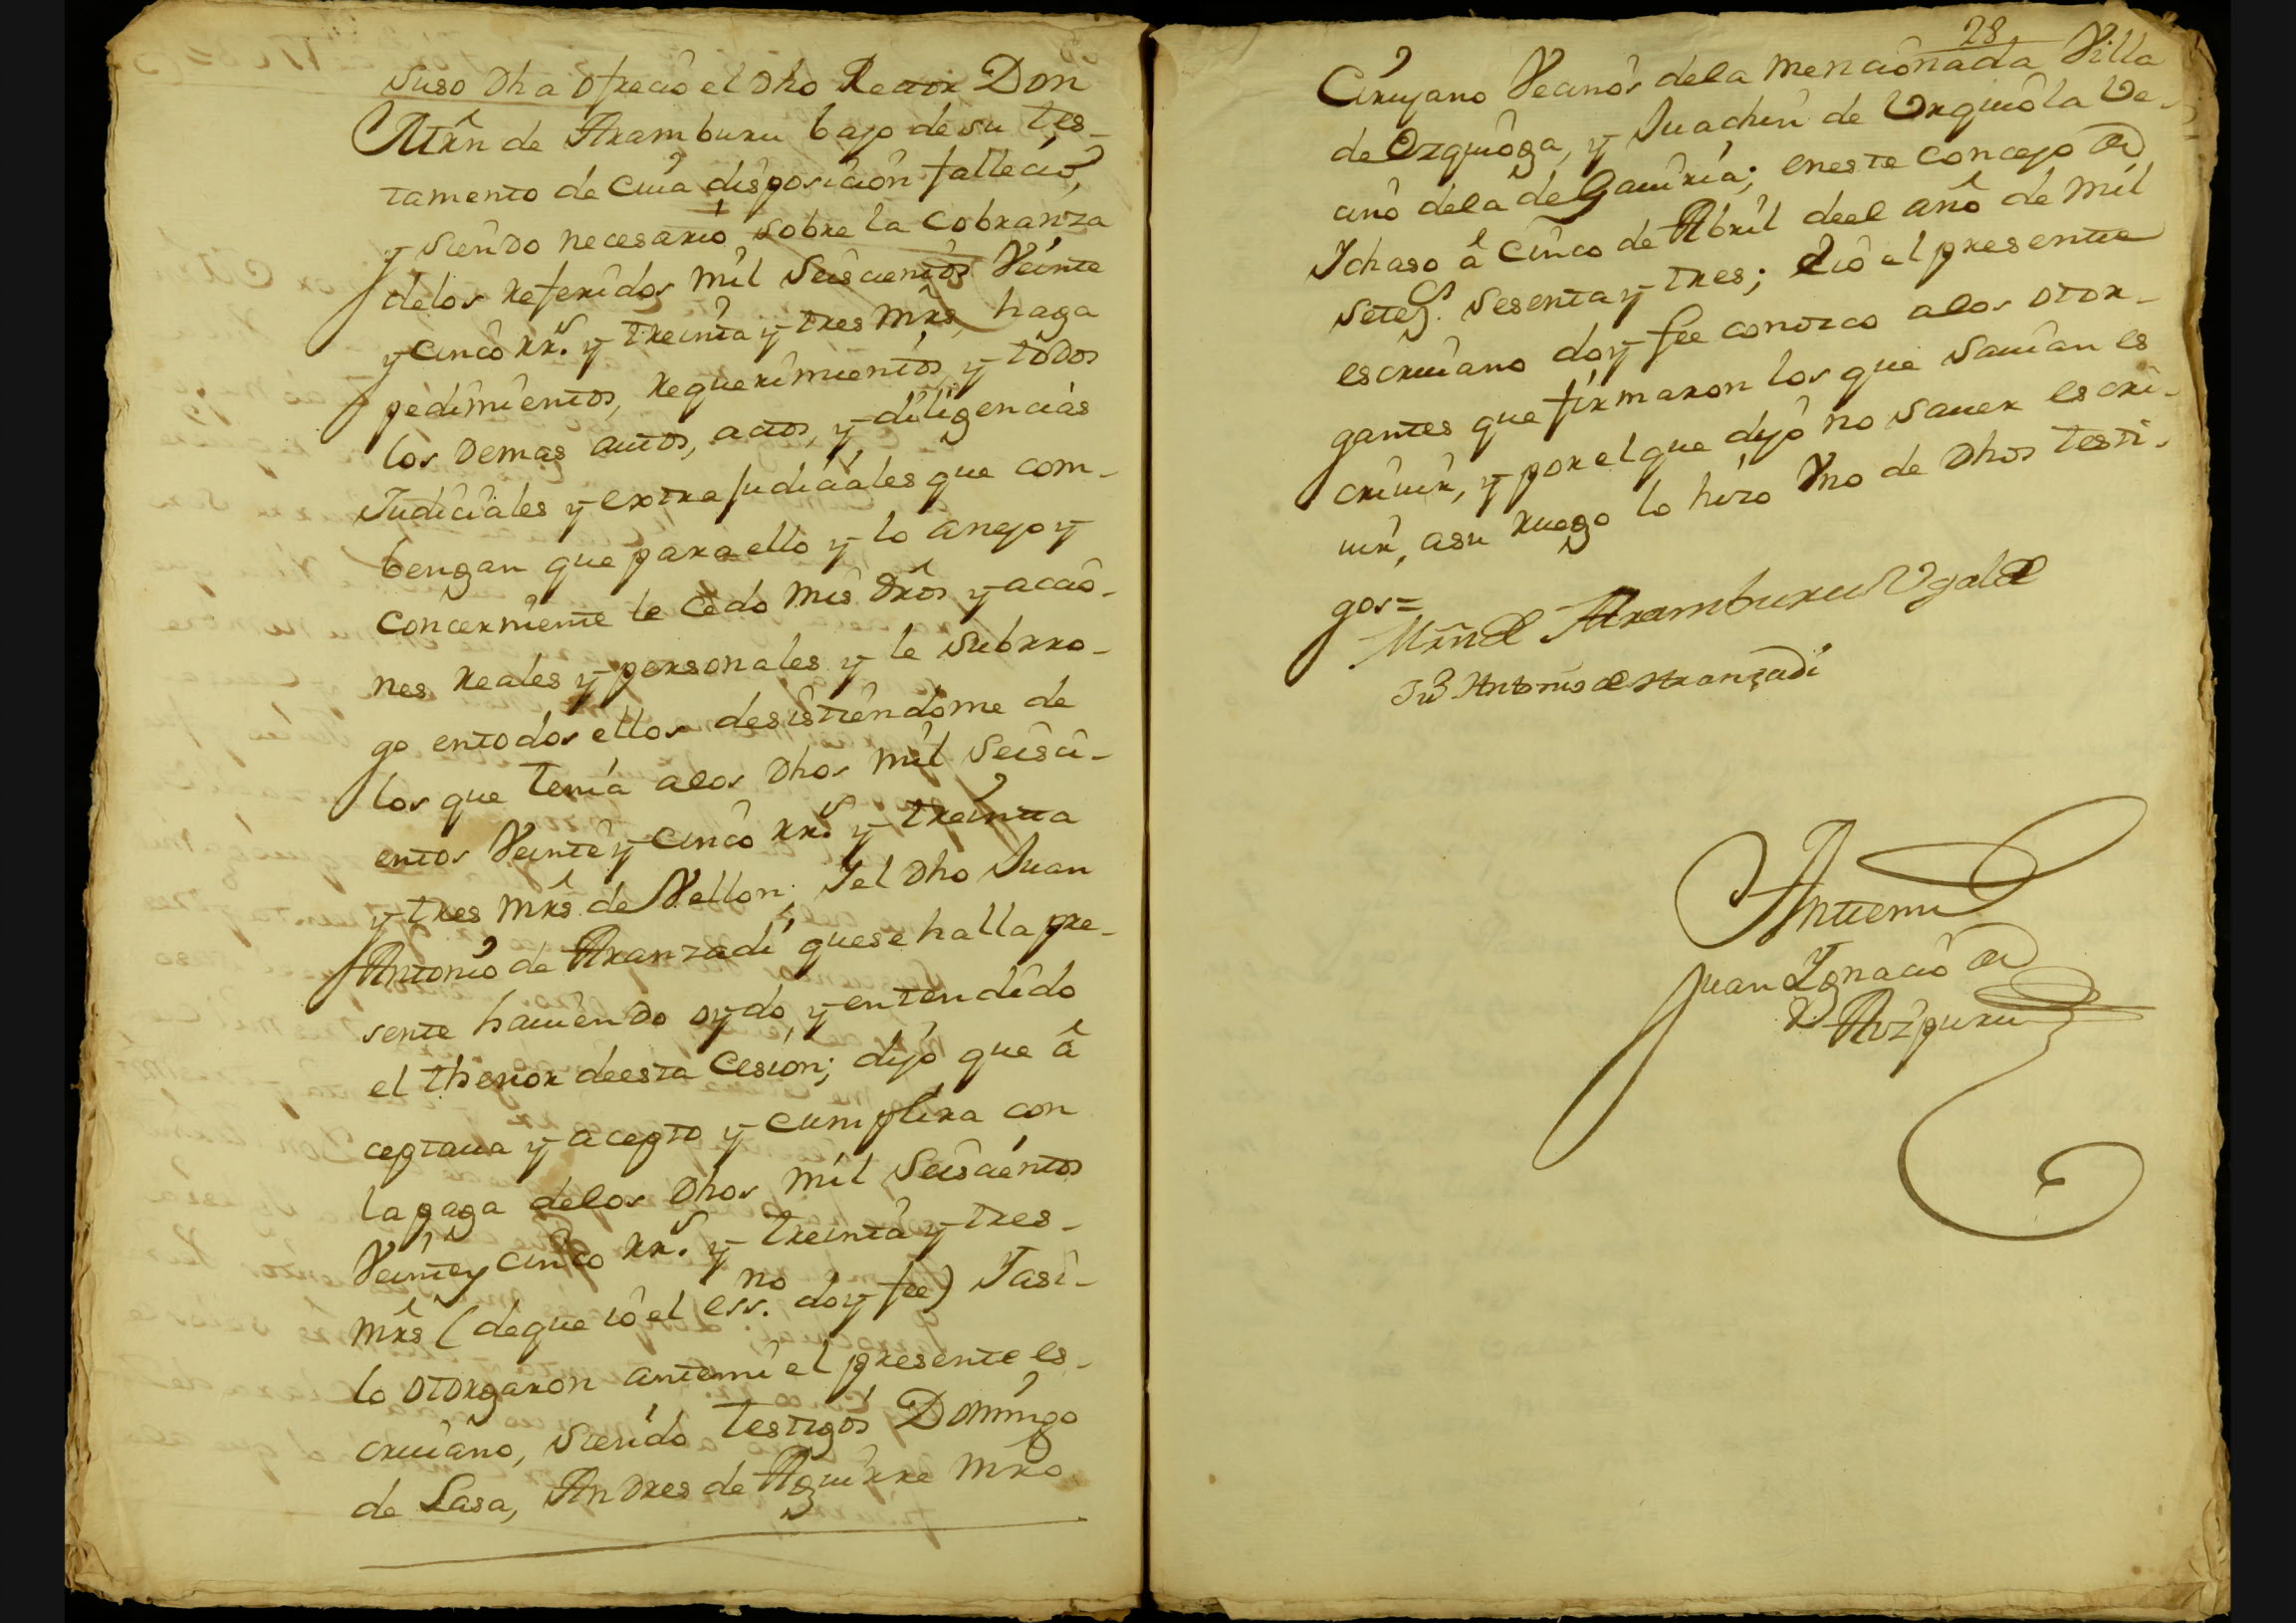 suso dha ofrecio el dho Rector Don
Mrn de Aramburu bajo de su tes-
tamento de cuia disposicion fallecio,
y siendo necesario sobre la cobranza
delos referidos mil seiscientos Veinte
y cinco rrs. y treinta y tres mrs, haga
pedimientos, requerimientos, y todos
los demas autos, actos, y diligencias
Judiciales y extrajudiciales que com-
bengan que para ello y lo anejo y
concerniente le cedo mis dros y accio-
nes reales y personales y le subrro-
go entodos ellos desistiendome de
los que tenia alos dhos mil seisci-
entos Veinte y cinco rrs. y treinta
y tres mrs de Vellon; Jel dho Juan
Antonio de Aranzadi quese halla pre-
sente hauiendo oydo, y entendido
el thenor deesta Cesion; dijo que â
ceptaua y acepto y cumplira con
la paga delos dhos mil seiscientos
Veinte y cinco rrs. y treinta y tres-
mrs (deque io el essno. doy fee) Jasi-
lo otorgaron antemi el presente es-
criuano, siendo testigos Domingo
de Lasa, Andres de Aguirre mro
28
Cirujano Vecinos dela mencionada Villa
de Ezquioga, y Juachin de Urquiola Ve-
cino dela de Gauiria; eneste concejo de
Ichaso â cinco de Abril deel año de mil
setezs. sesenta y tres; â io el presente
escriuano doy fee conozco alos otor-
gantes que firmaron los que sauian es
criuir, y por el que dijo no sauer escri-
uir, asu ruego lo hizo Vno de dhos testi-
gos=
Mrn de Aramburu Vgalde
Jun Antonio de Aranzadi
Antemi
Juan Ignacio de
Aozpuru